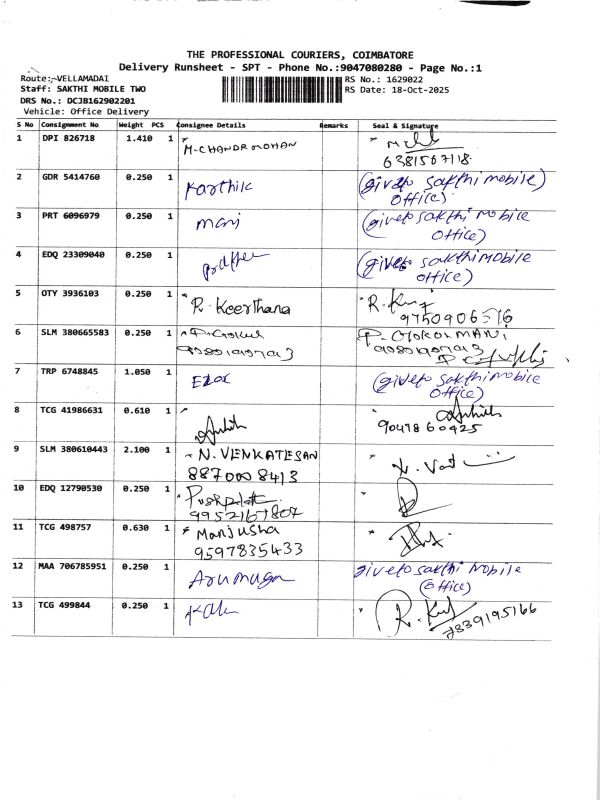 THE PROFESSIONAL COURIERS, COIMBATORE
Delivery Runsheet - SPT - Phone No.:9047080280 - Page No.:1
Route:-VELLAMADAI RS No.: 1629022
Staff: SAKTHI MOBILE TWO RS Date: 18-Oct-2025
DRS No.: DCJB162902201
Vehicle: Office Delivery
S No Consignment No Weight PCS Consignee Details Remarks Seal & Signature
1 DPI 826718 1.410 1 M-CHANDRMOHAN
6381507118
2 GDR 5414760 0.250 1 Karthik (giveto sakthi mobile)
office)
3 PRT 6096979 0.250 1 mani (giveto sakthi mobile
office)
4 EDQ 23309040 0.250 1 (giveto sakthi mobile
office)
5 OTY 3936103 0.250 1 R. Keerthana R.
9750906516
6 SLM 380665583 0.250 1 P. Gokul P. GOKULMANI
7 TRP 6748845 1.050 1 (giveto sakthi mobile
office)
8 TCG 41986631 0.610 1
9047860425
9 SLM 380610443 2.100 1 N. VENKATESAN
8870008413
10 EDQ 12790530 0.250 1
9952167807
11 TCG 498757 0.630 1 Manjusha
9597835433
12 MAA 706785951 0.250 1 Arumuga giveto sakthi mobile
(office)
13 TCG 499844 0.250 1 R.
7339195166